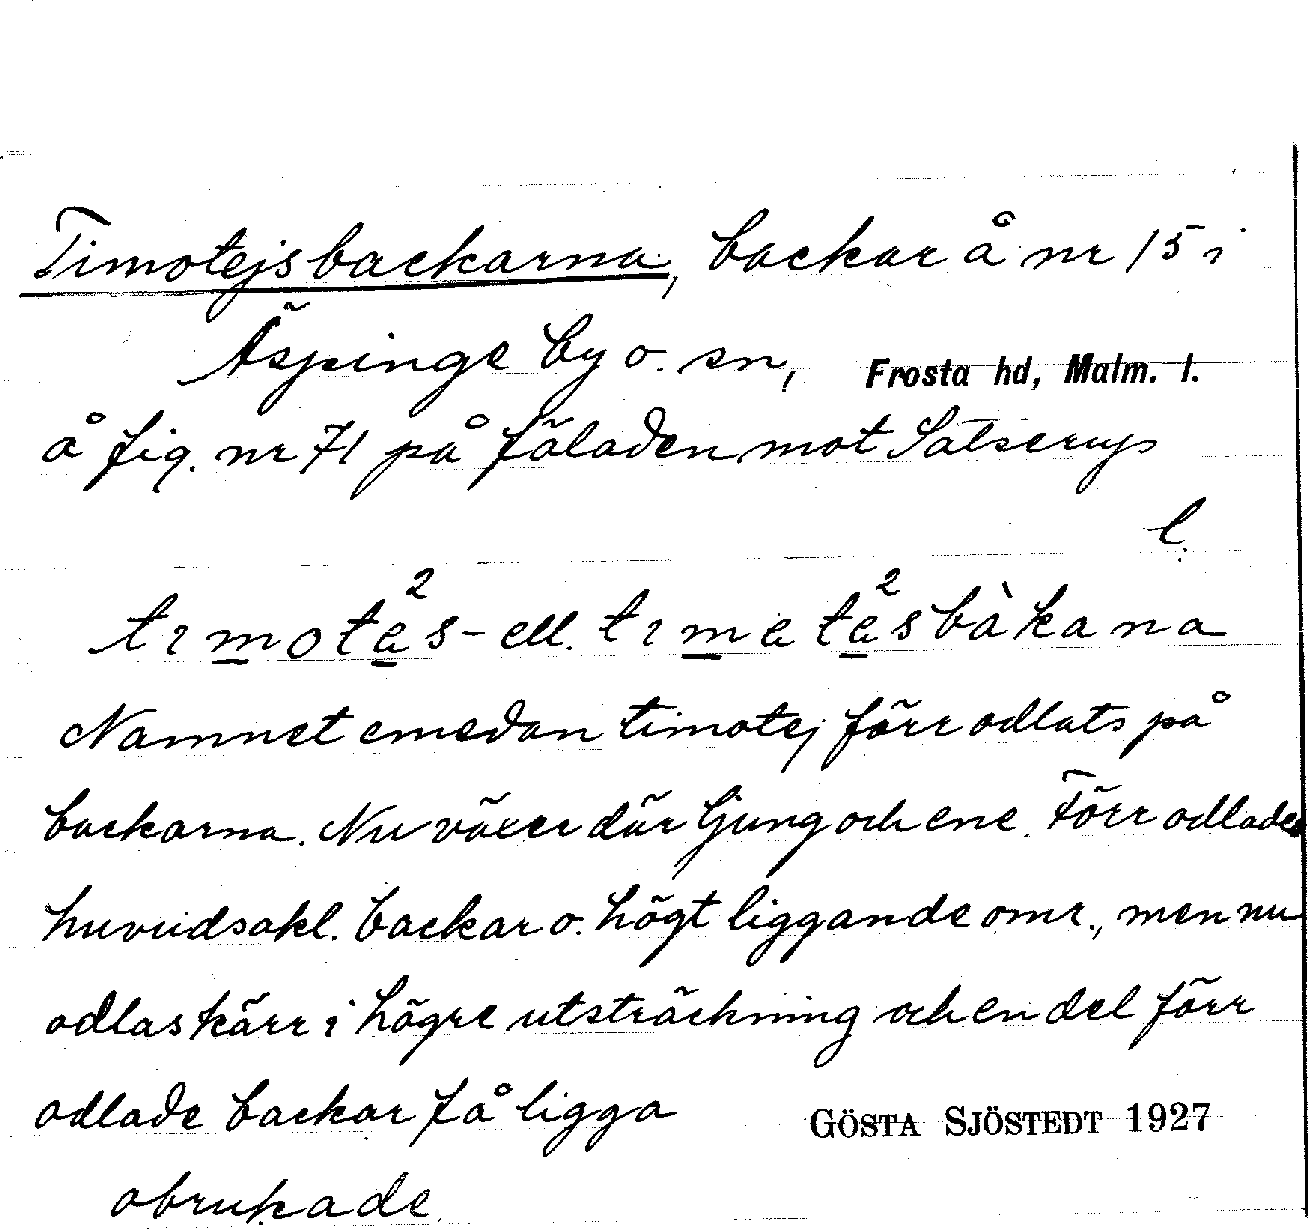 Timotejsbackarna, backar å nr 15 i
Äspinge by o. sn, Frosta hd, Malm. l.
å fig. nr 71 på fäladen mot Satserup
l.
timotas- ell. timatasbàkana
Namnet emedan timotej förr odlats på
backarna. Nu växer där ljung och ene. Förr odlades
huvudsakl. backar o. högt liggande omr., men nu
odlas kärr i högre utsträckning och en del förr
odlade backar få ligga GÖSTA SJÖSTEDT 1927
obrukade.